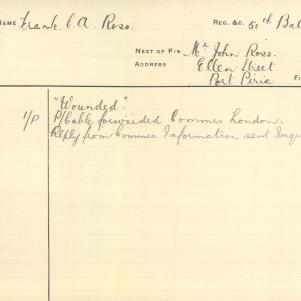 NAME Frank C. A. Ross. REG. &C. 50th Bat
NEXT OF KIN Mr John Ross.
ADDRESS Ellen Street
Port Pirie
"Wounded".
1/P P/Cable forwarded Commrs London.
Reply from Commrs. Information sent Inqu